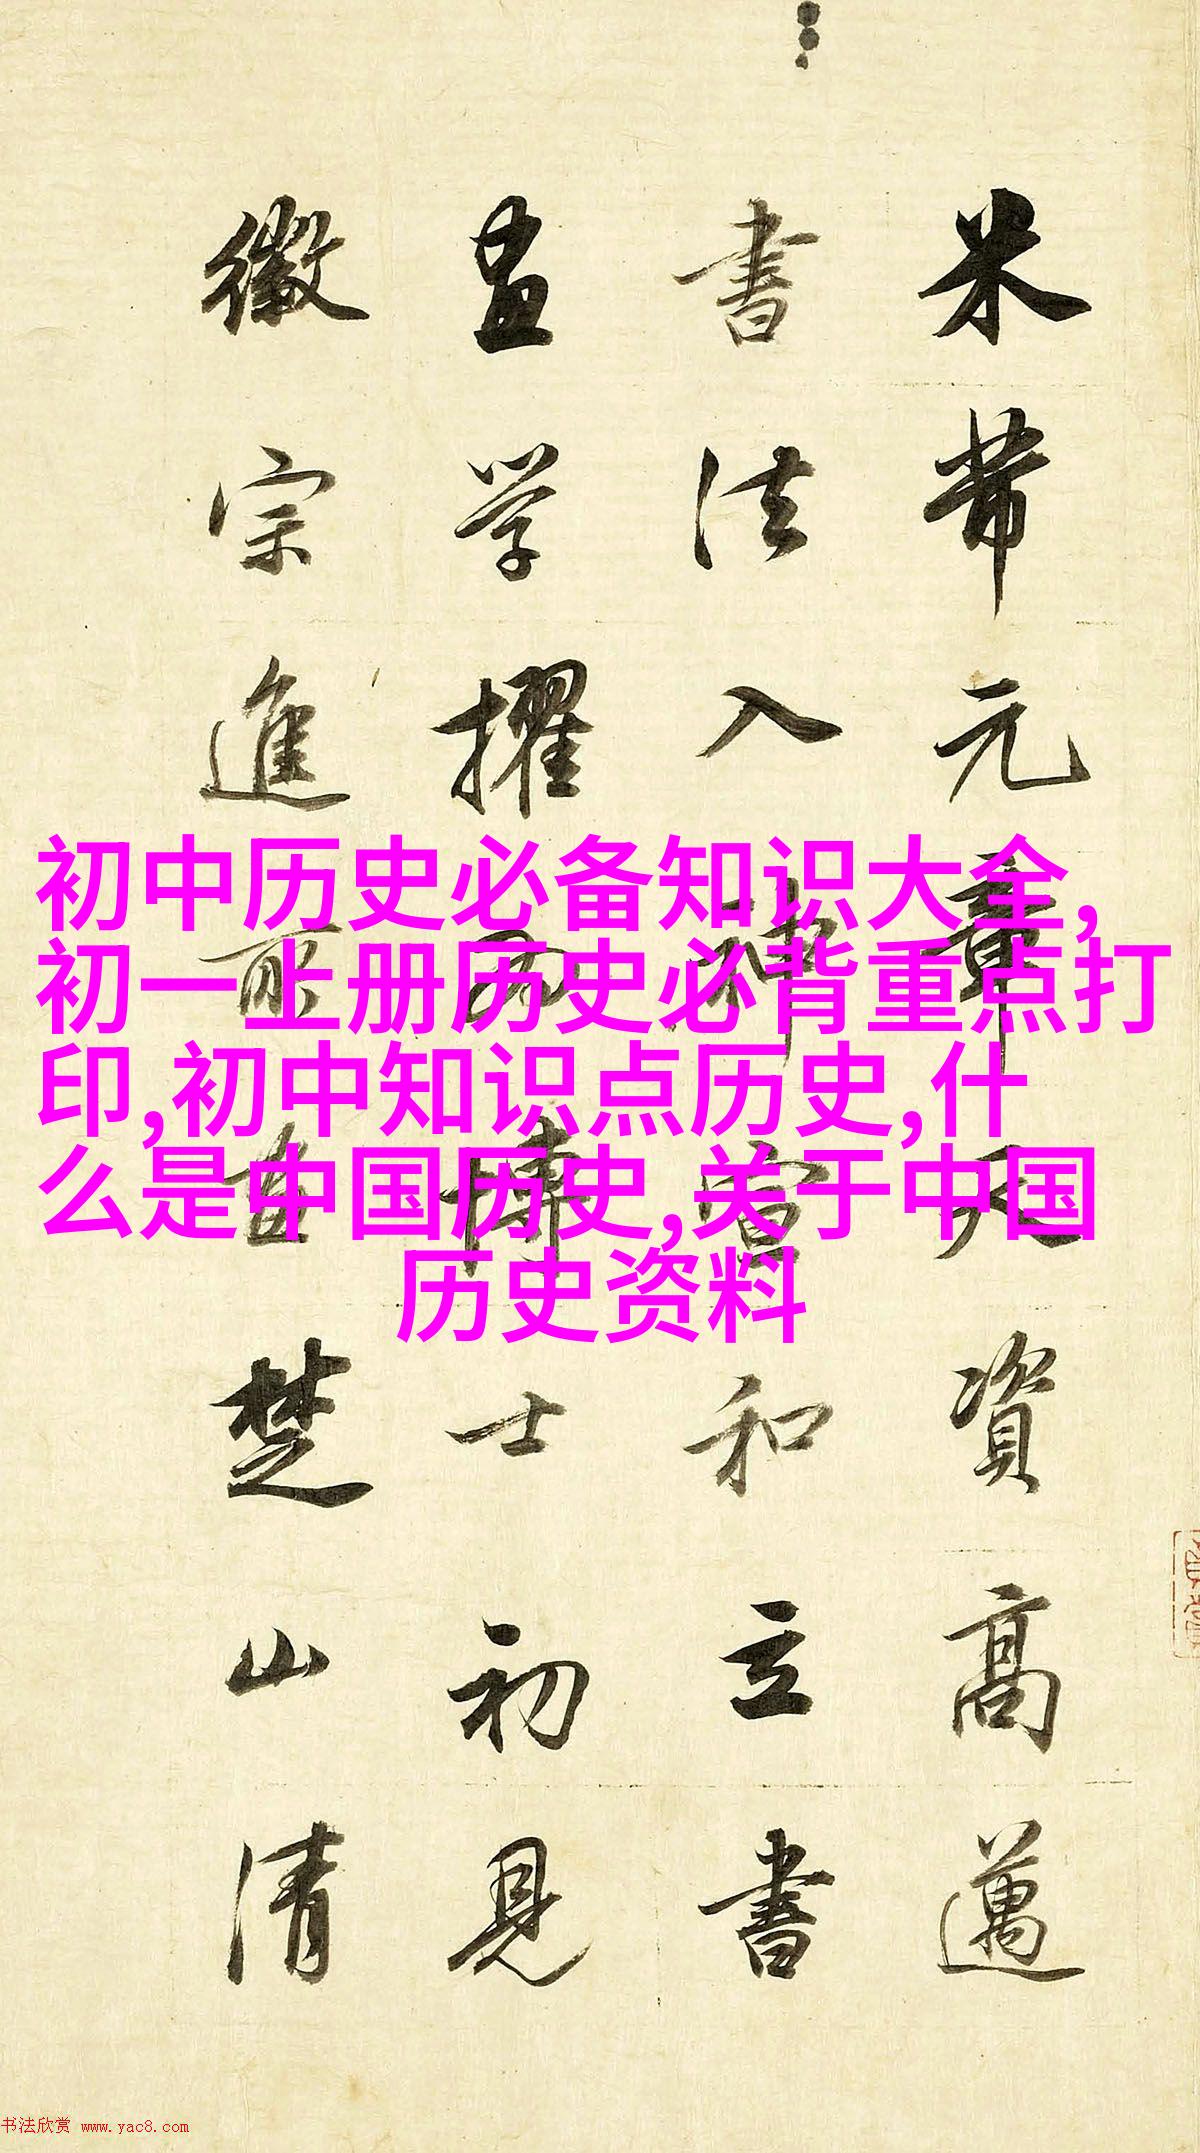 初中历史必备知识大全,
初一上册历史必背重点打
印,初中知识点历史,什
么是中国历史,关于中国
历史资料
米芾元章天資高邁
書法入神宣和立書
畫学擢為博士初見
徽宗進所画楚山清
书法欣赏 www.yac8.com